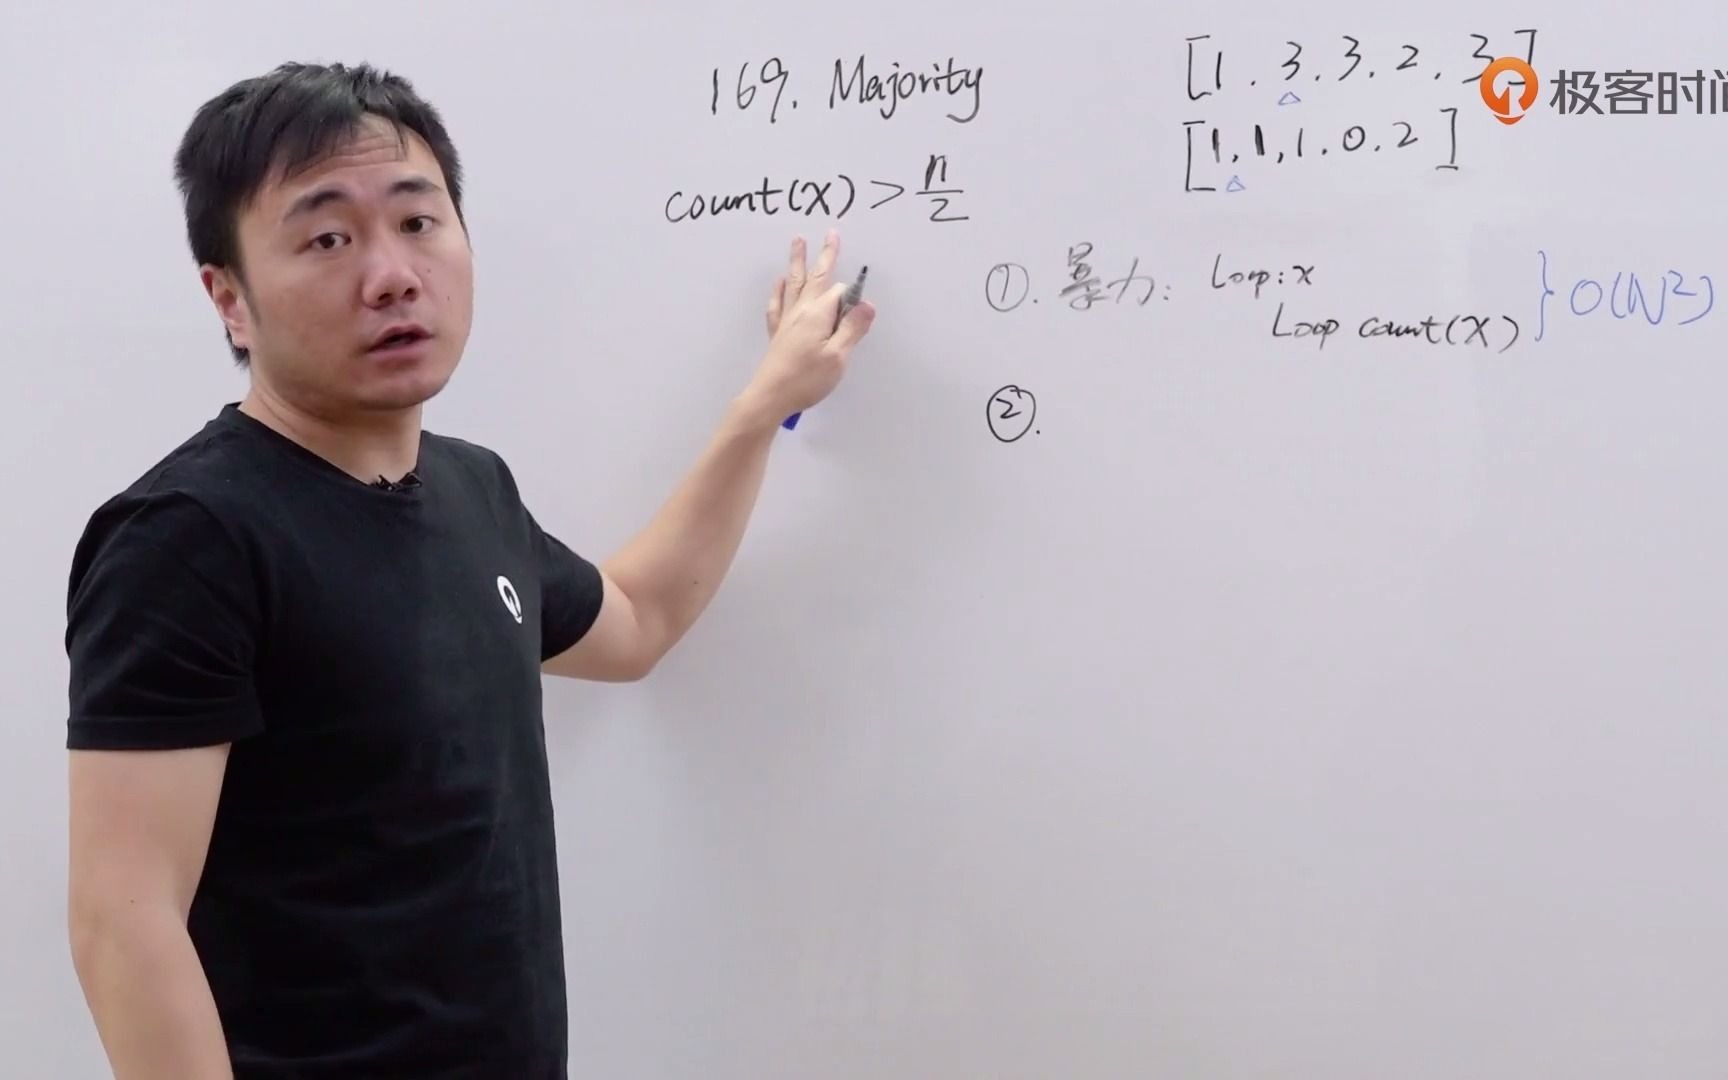 169. Majority
count(x) > n/2
[1. 3. 3. 2. 3]
极客时间
[1, 1, 1. 0. 2]
①. 暴力: Loop: x
Loop count(x) } O(N²)
②.